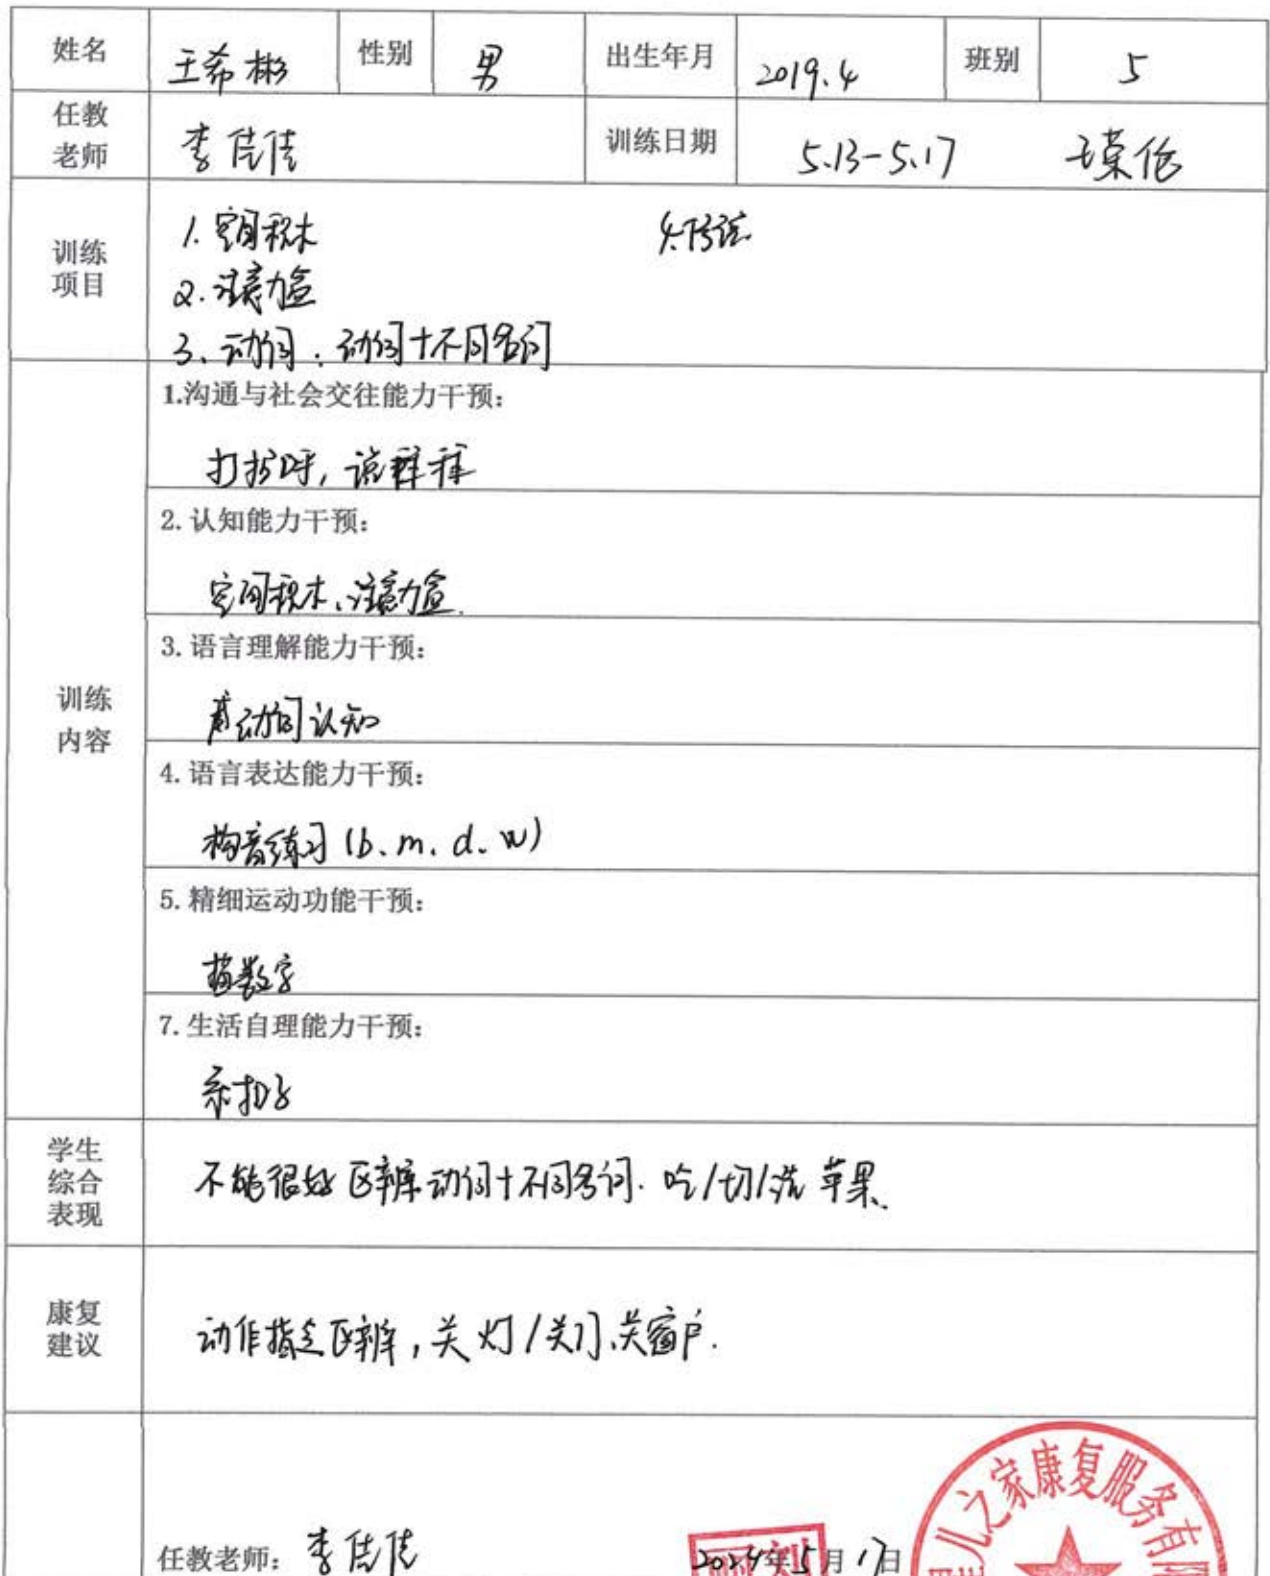 姓名 王希彬 性别 男 出生年月 2019.4 班别 5
任教老师 李佳佳 训练日期 5.13-5.17 王荣俭
训练项目
1. 空间积木
2. 注意力盒
3、动词：动词+不同名词
训练内容
1.沟通与社会交往能力干预：
打招呼，说拜拜
2. 认知能力干预：
空间积木、注意力盒.
3. 语言理解能力干预：
动词认知
4. 语言表达能力干预：
构音练习(b、m、d、w)
5. 精细运动功能干预：
描数字
7. 生活自理能力干预：
系扣子
学生综合表现
不能很好区辨动词+不同名词. 吃/切/洗 苹果.
康复建议
动作指令区辨，关灯/关门、关窗户.
任教老师：李佳佳 2024年5月17日
儿之家康复服务有限